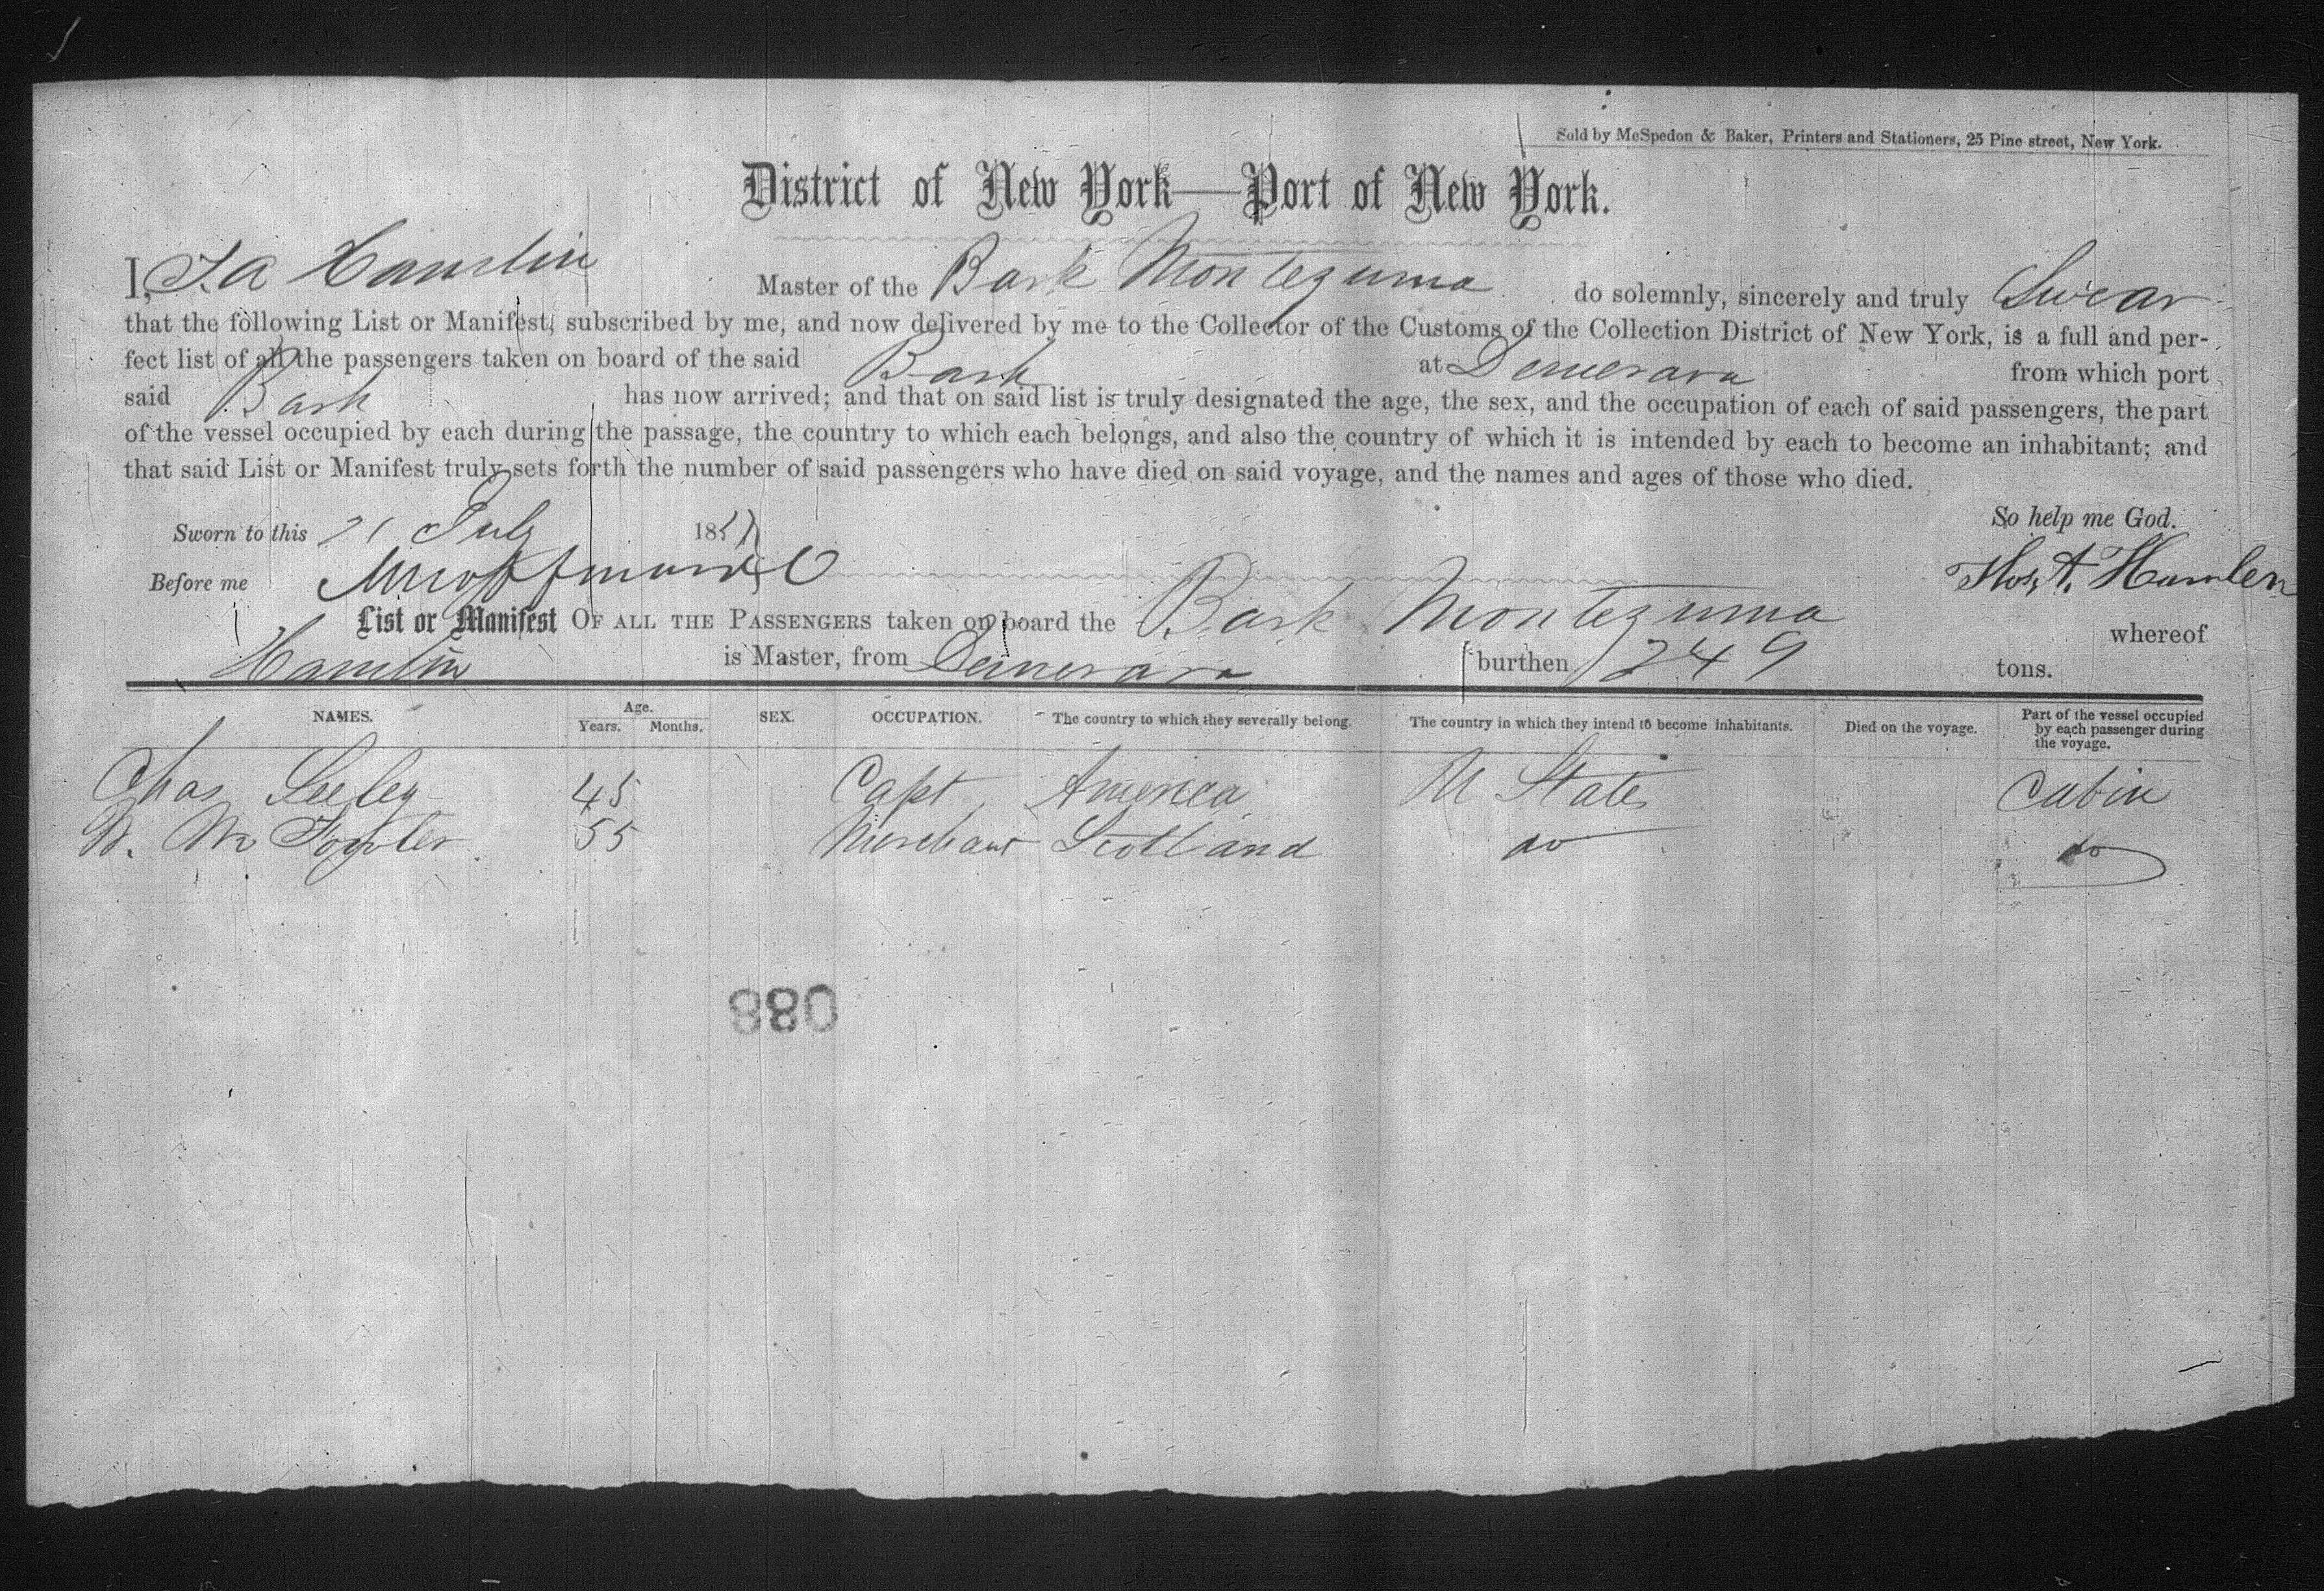 Sold by McSpedon & Baker, Printers and Stationers, 25 Pine street, New York.
District of New York—Port of New York.
I, T. A Hamlin Master of the Bark Montezuma do solemnly, sincerely and truly Swear
that the following List or Manifest, subscribed by me, and now delivered by me to the Collector of the Customs of the Collection District of New York, is a full and per-
fect list of all the passengers taken on board of the said Bark at Demerara from which port
said Bark has now arrived; and that on said list is truly designated the age, the sex, and the occupation of each of said passengers, the part
of the vessel occupied by each during the passage, the country to which each belongs, and also the country of which it is intended by each to become an inhabitant; and
that said List or Manifest truly sets forth the number of said passengers who have died on said voyage, and the names and ages of those who died.
So help me God.
Sworn to this 21 July 1857
Before me Thos. A. Hamlen
List or Manifest OF ALL THE PASSENGERS taken on board the Bark Montezuma whereof
Hamlin is Master, from Demerara burthen 249 tons.
NAMES. Age. Years. Months. SEX. OCCUPATION. The country to which they severally belong. The country in which they intend to become inhabitants. Died on the voyage. Part of the vessel occupied by each passenger during the voyage.
Chas Seeley 45 Capt, America U States Cabin
55 Merchant Scotland do do
088